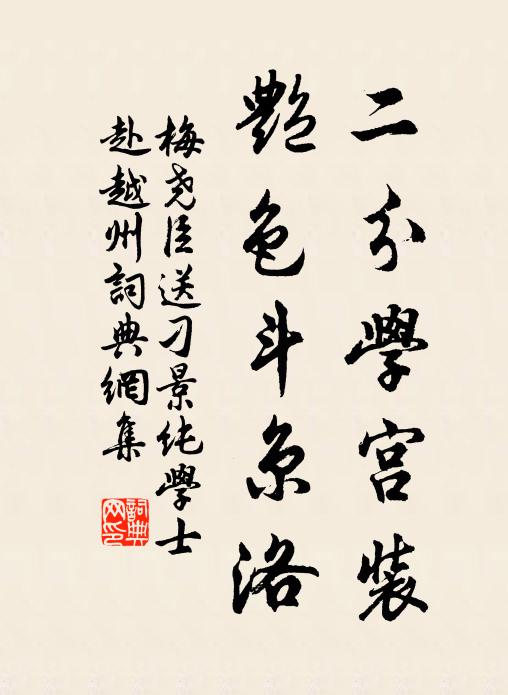 二分學宮裝
艷色斗京洛
梅尧臣送刁景纯學士
赴越州詞典網集
詞典
网印